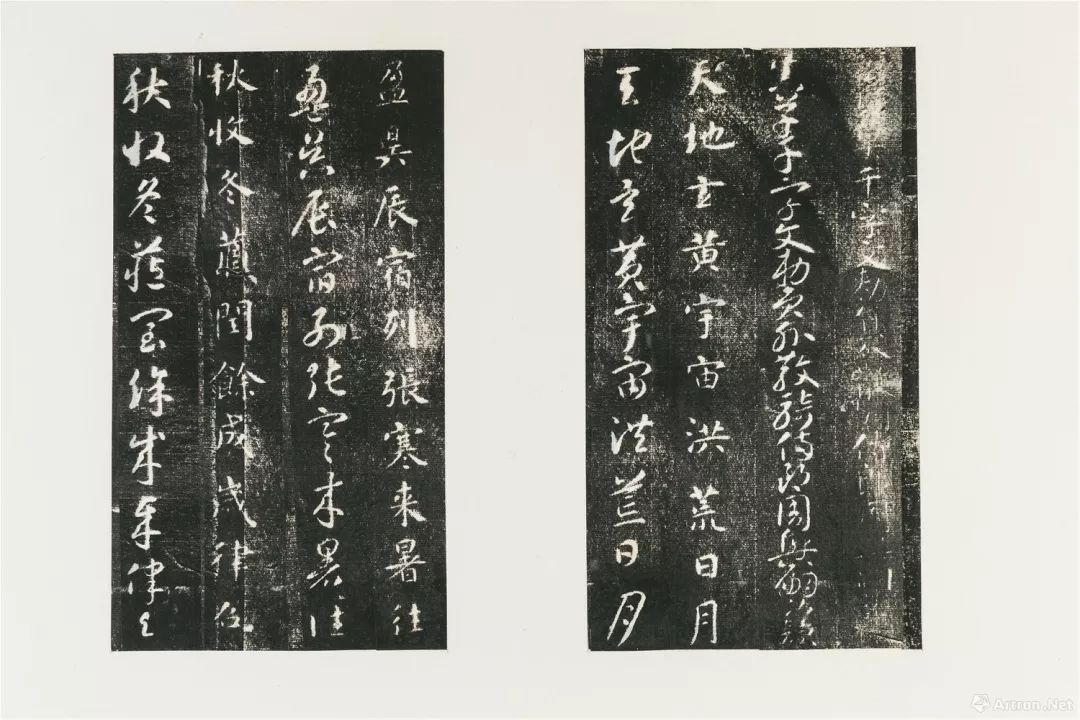 千字文
草千字文勑員外散騎侍郎周興嗣次韻
天地玄黄宇宙洪荒日月
天地玄黄宇宙洪荒日月
盈昃辰宿列張寒来暑往
盈昃辰宿列張寒来暑往
秋收冬藏閏餘成歲律
秋收冬藏閏餘成歲律
Artron.Net